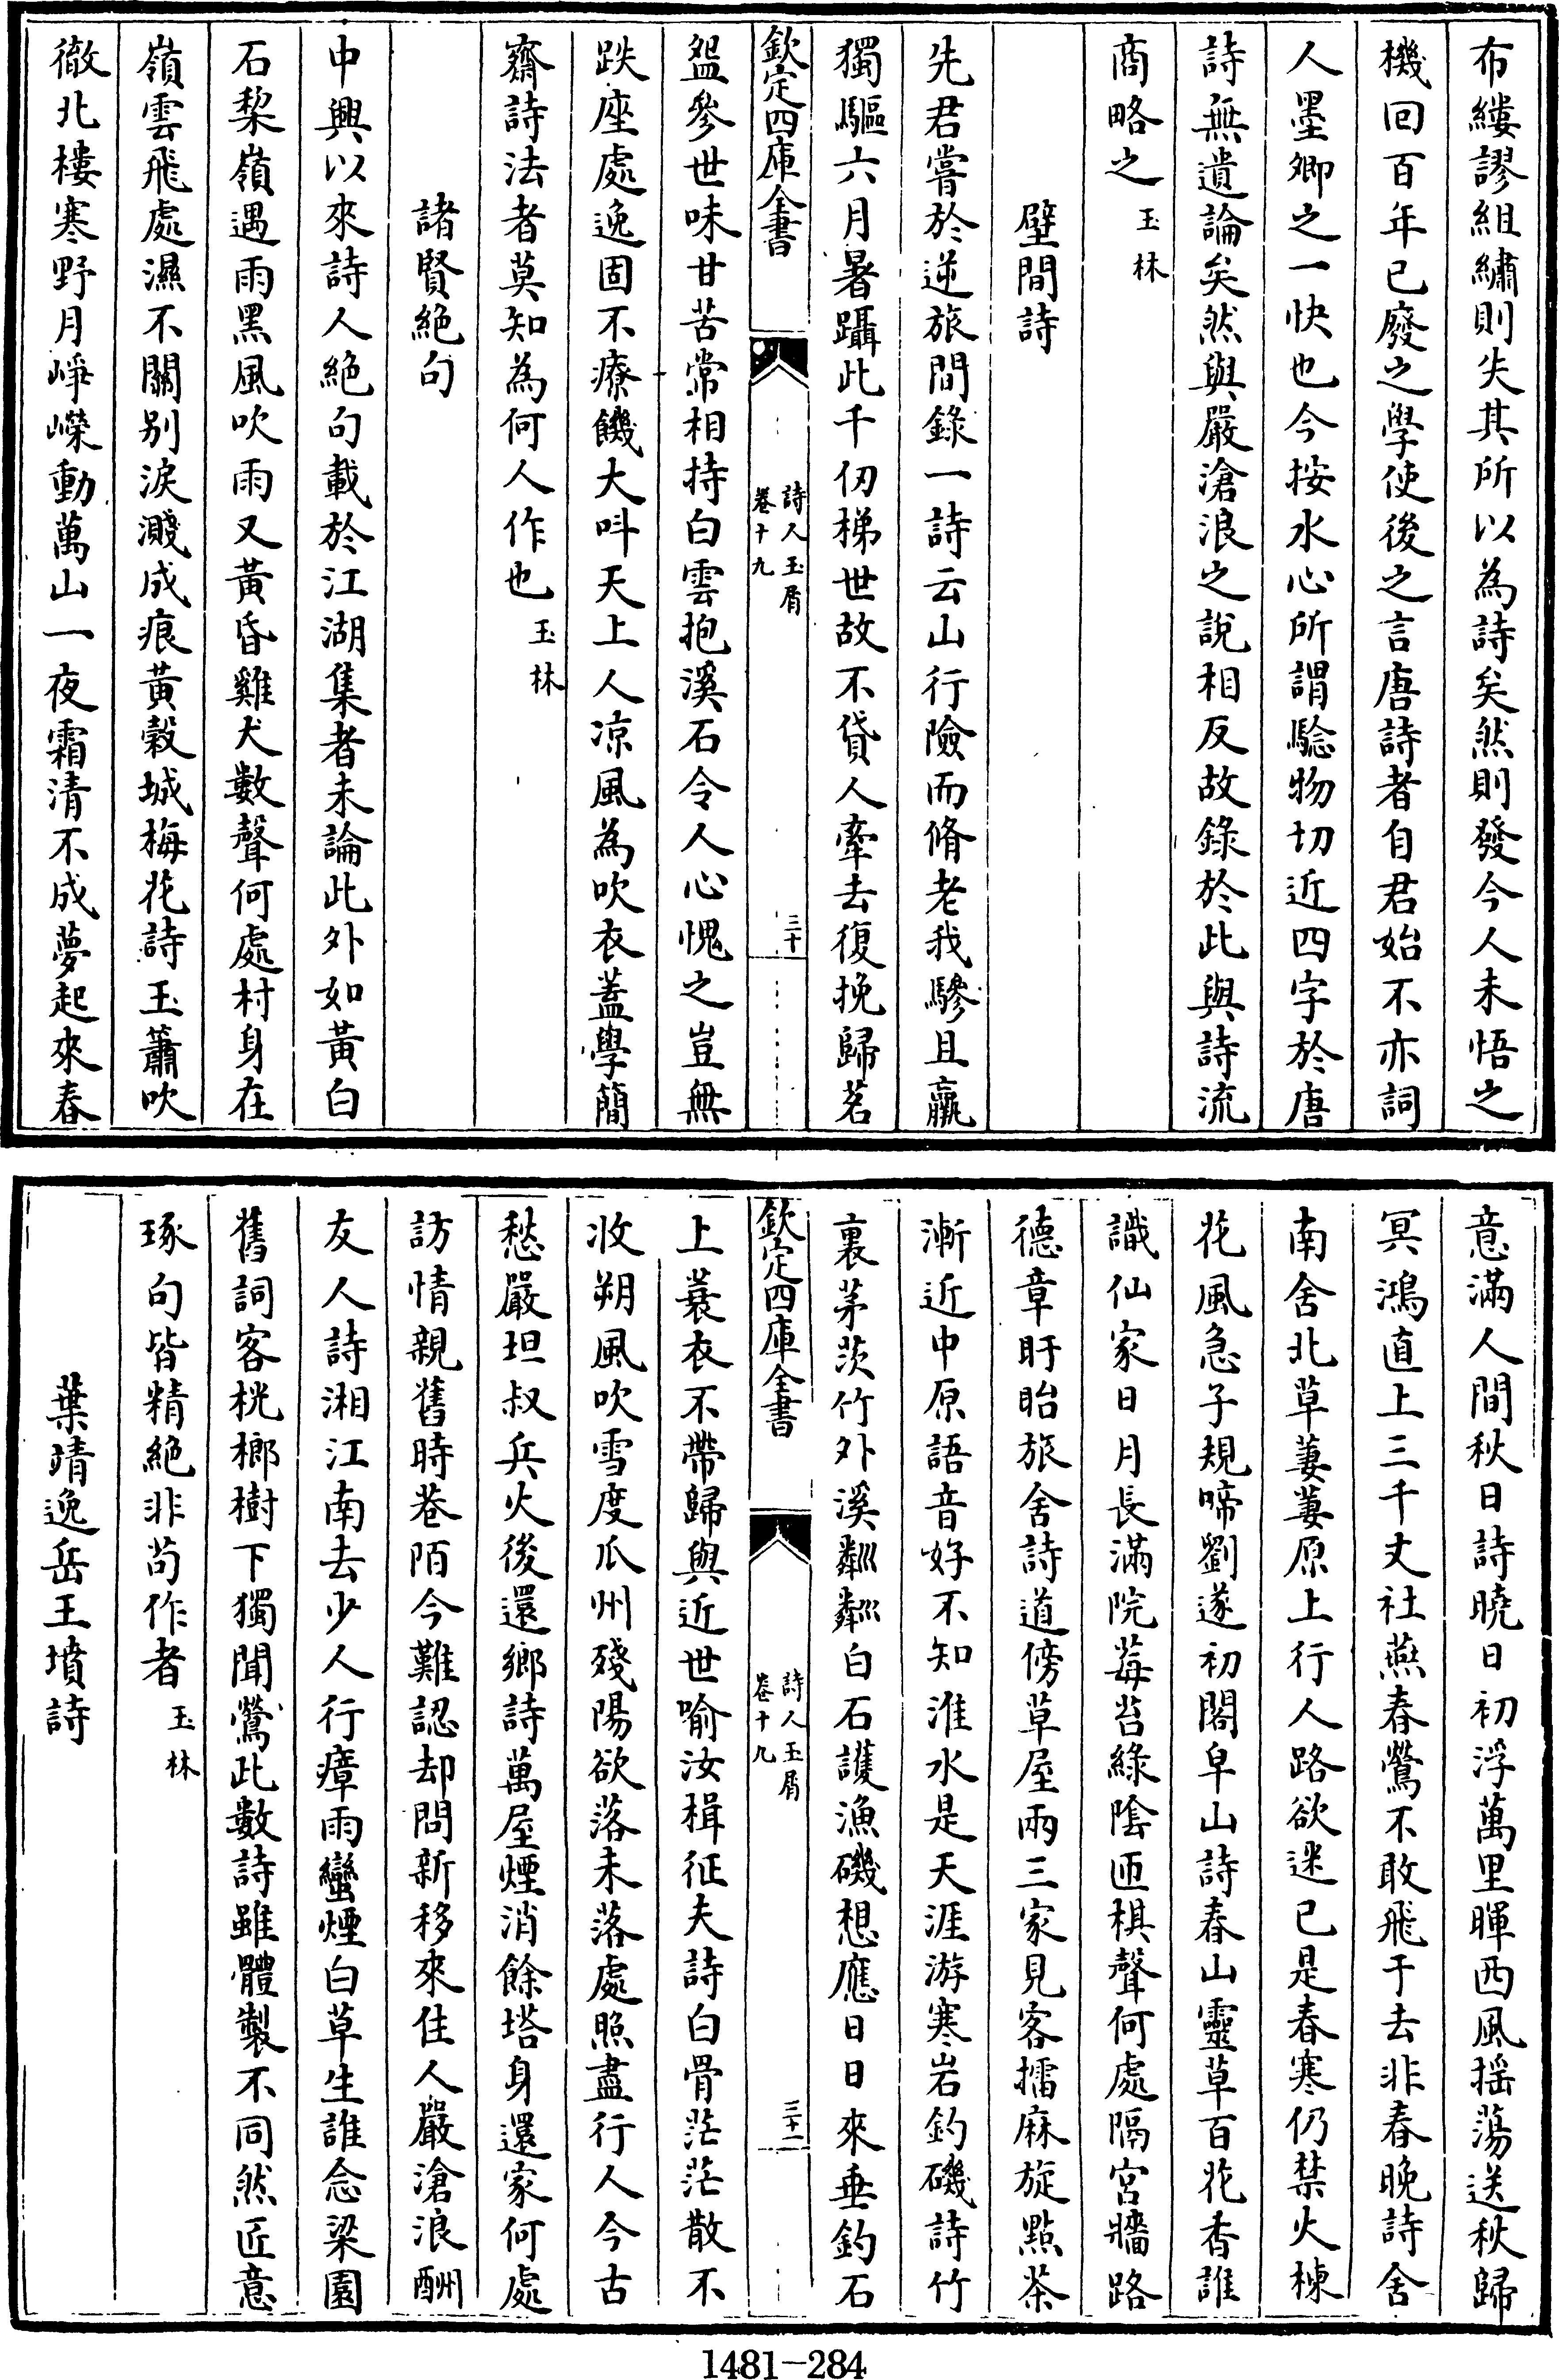 布縷謬組繡則失其所以為詩矣然則發今人未悟之
機回百年已廢之學使後之言唐詩者自君始不亦詞
人墨卿之一快也今按水心所謂騐物切近四字於唐
詩無遺論矣然與嚴滄浪之說相反故錄於此與詩流
商略之玉林
壁間詩
先君嘗於逆旅間錄一詩云山行險而脩老我驂且羸
獨驅六月暑躡此千仞梯世故不貸人牽去復挽歸茗
欽定四庫全書
詩人玉屑
卷十九
三十
盌參世味甘苦常相持白雲抱溪石令人心愧之豈無
跌座處逸固不療饑大呌天上人凉風為吹衣蓋學簡
齋詩法者莫知為何人作也玉林
諸賢絶句
中興以來詩人絶句載於江湖集者未論此外如黃白
石棃嶺遇雨黑風吹雨又黃昏雞犬數聲何處村身在
嶺雲飛處濕不關别淚濺成痕黃穀城梅花詩玉簫吹
徹北樓寒野月崢嶸動萬山一夜霜清不成夢起來春
意滿人間秋日詩曉日初浮萬里暉西風揺蕩送秋歸
冥鴻直上三千丈社燕春鶯不敢飛于去非春晚詩舍
南舍北草萋萋原上行人路欲迷已是春寒仍禁火楝
花風急子規啼劉遂初閣皁山詩春山靈草百花香誰
識仙家日月長滿院莓苔綠陰匝棋聲何處隔宮牆路
德章盱眙旅舍詩道傍草屋兩三家見客擂麻旋點茶
漸近中原語音好不知淮水是天涯游寒岩釣磯詩竹
裏茅茨竹外溪粼粼白石護漁磯想應日日來垂釣石
欽定四庫全書
詩人玉屑
卷十九
三十一
上蓑衣不帶歸與近世喻汝楫征夫詩白骨茫茫散不
收朔風吹雪度瓜州殘陽欲落未落處照盡行人今古
愁嚴坦叔兵火後還鄉詩萬屋煙消餘塔身還家何處
訪情親舊時巷陌今難認却問新移來住人嚴滄浪酬
友人詩湘江南去少人行瘴雨蠻煙白草生誰念梁園
舊詞客桄榔樹下獨聞鶯此數詩雖體製不同然匠意
琢句皆精絶非茍作者玉林
葉靖逸岳王墳詩
1481-284